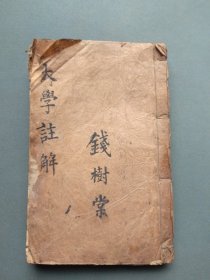 大學註解
錢樹棠